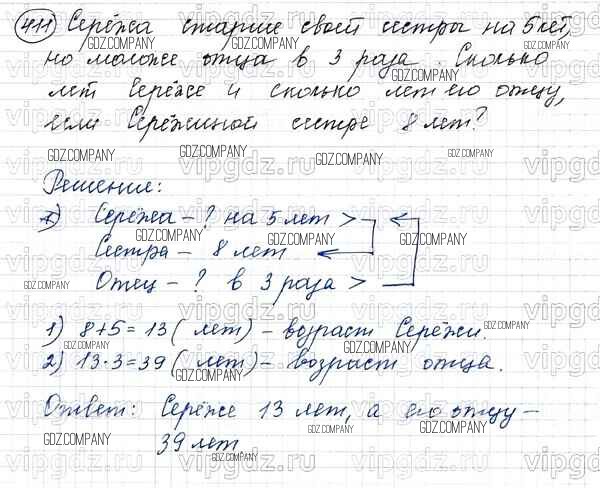 411 Серёжа старше своей сестры на 5 лет,
но моложе отца в 3 раза. Сколько
лет Серёже и сколько лет его отцу,
если Серёжиной сестре 8 лет?
Решение:
Серёжа - ? на 5 лет >
Сестра - 8 лет
Отец - ? в 3 раза >
1) 8+5=13 (лет) - возраст Серёжи.
2) 13·3=39 (лет) - возраст отца.
Ответ: Серёже 13 лет, а его отцу -
39 лет
GDZ.COMPANY
vipgdz.ru